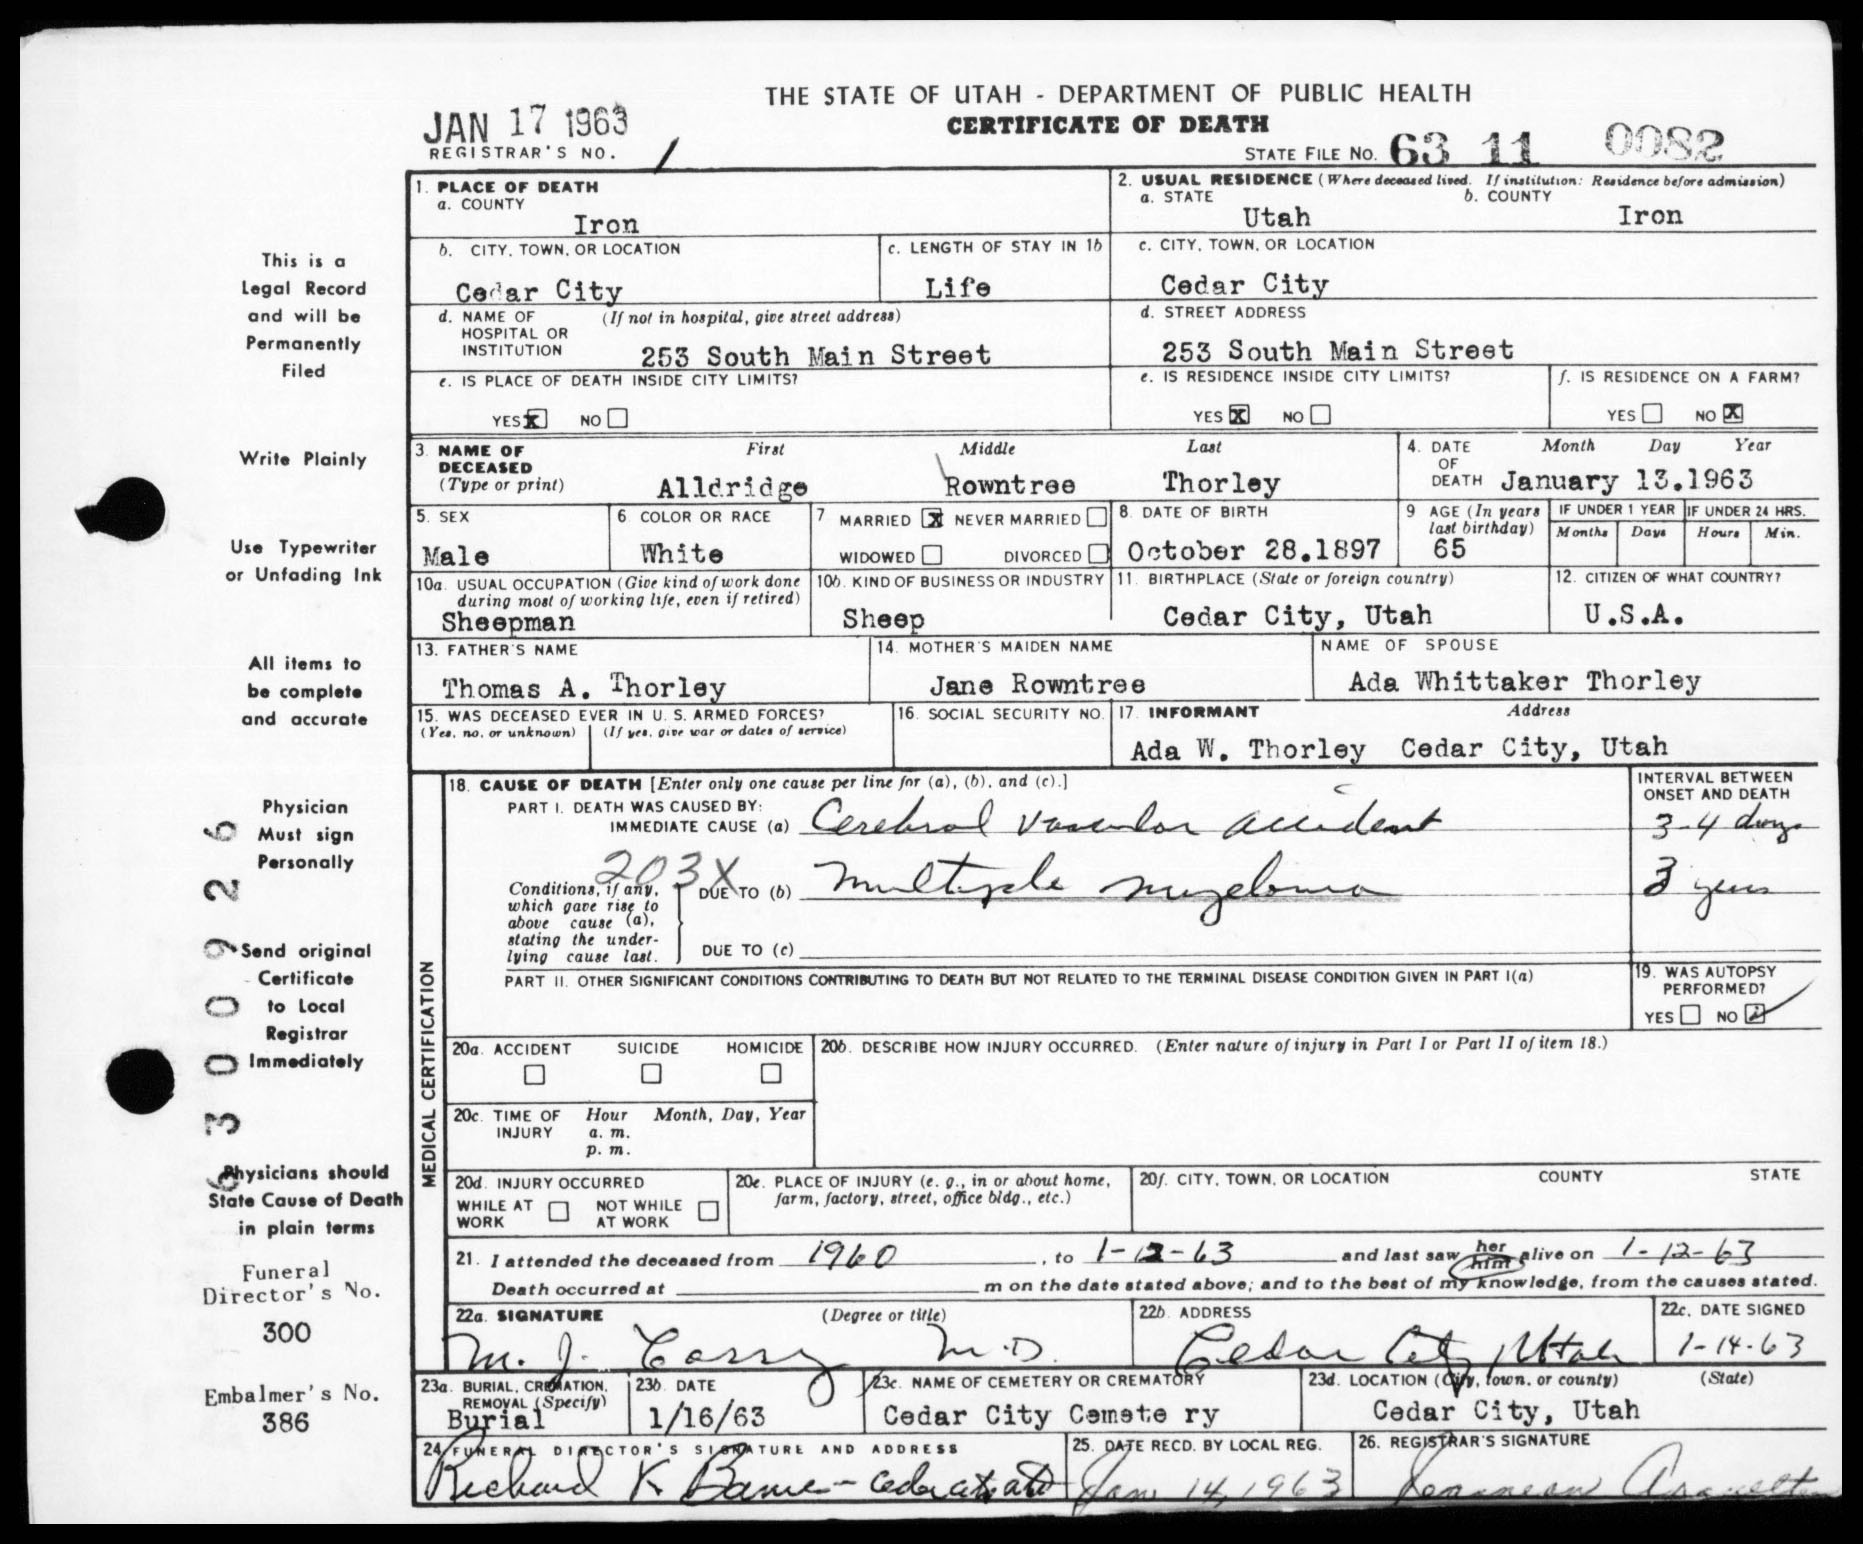 THE STATE OF UTAH - DEPARTMENT OF PUBLIC HEALTH
JAN 17 1963
CERTIFICATE OF DEATH
REGISTRAR'S NO. 1
STATE FILE NO. 63 11 0082
1. PLACE OF DEATH
a. COUNTY
Iron
2. USUAL RESIDENCE (Where deceased lived. If institution: Residence before admission)
a. STATE
Utah
b. COUNTY
Iron
b. CITY, TOWN, OR LOCATION
Cedar City
c. LENGTH OF STAY IN 1b
Life
c. CITY, TOWN, OR LOCATION
Cedar City
d. NAME OF HOSPITAL OR INSTITUTION
(If not in hospital, give street address)
253 South Main Street
d. STREET ADDRESS
253 South Main Street
e. IS PLACE OF DEATH INSIDE CITY LIMITS?
YES X NO
e. IS RESIDENCE INSIDE CITY LIMITS?
YES X NO
f. IS RESIDENCE ON A FARM?
YES NO X
3. NAME OF DECEASED
(Type or print)
First Middle Last
Alldridge Rowntree Thorley
4. DATE OF DEATH
Month Day Year
January 13.1963
5. SEX
Male
6. COLOR OR RACE
White
7 MARRIED X NEVER MARRIED
WIDOWED DIVORCED
8. DATE OF BIRTH
October 28.1897
9 AGE (In years last birthday)
65
IF UNDER 1 YEAR
Months Days
IF UNDER 24 HRS.
Hours Min.
10a. USUAL OCCUPATION (Give kind of work done during most of working life, even if retired)
Sheepman
10b. KIND OF BUSINESS OR INDUSTRY
Sheep
11. BIRTHPLACE (State or foreign country)
Cedar City, Utah
12. CITIZEN OF WHAT COUNTRY?
U.S.A.
13. FATHER'S NAME
Thomas A. Thorley
14. MOTHER'S MAIDEN NAME
Jane Rowntree
NAME OF SPOUSE
Ada Whittaker Thorley
15. WAS DECEASED EVER IN U. S. ARMED FORCES?
(Yes, no, or unknown) (If yes, give war or dates of service)
16. SOCIAL SECURITY NO.
17. INFORMANT Address
Ada W. Thorley Cedar City, Utah
MEDICAL CERTIFICATION
18. CAUSE OF DEATH [Enter only one cause per line for (a), (b), and (c).]
INTERVAL BETWEEN ONSET AND DEATH
PART I. DEATH WAS CAUSED BY:
IMMEDIATE CAUSE (a) Cerebral vascular accident
3-4 days
203X
Conditions, if any, which gave rise to above cause (a), stating the underlying cause last.
DUE TO (b) Multiple myeloma
3 years
DUE TO (c)
PART II. OTHER SIGNIFICANT CONDITIONS CONTRIBUTING TO DEATH BUT NOT RELATED TO THE TERMINAL DISEASE CONDITION GIVEN IN PART I(a)
19. WAS AUTOPSY PERFORMED?
YES NO
20a. ACCIDENT SUICIDE HOMICIDE
20b. DESCRIBE HOW INJURY OCCURRED. (Enter nature of injury in Part I or Part II of item 18.)
20c. TIME OF INJURY
Hour Month, Day, Year
a. m.
p. m.
20d. INJURY OCCURRED
WHILE AT WORK NOT WHILE AT WORK
20e. PLACE OF INJURY (e. g., in or about home, farm, factory, street, office bldg., etc.)
20f. CITY, TOWN, OR LOCATION COUNTY STATE
21. I attended the deceased from 1960, to 1-12-63 and last saw her him alive on 1-12-63
Death occurred at m on the date stated above; and to the best of my knowledge, from the causes stated.
22a. SIGNATURE (Degree or title)
M. J. M.D.
22b. ADDRESS
Cedar City, Utah
22c. DATE SIGNED
1-14-63
23a. BURIAL, CREMATION, REMOVAL (Specify)
Burial
23b. DATE
1/16/63
23c. NAME OF CEMETERY OR CREMATORY
Cedar City Cemete ry
23d. LOCATION (City, town, or county) (State)
Cedar City, Utah
24 FUNERAL DIRECTOR'S SIGNATURE AND ADDRESS
Richard K
25. DATE RECD. BY LOCAL REG.
Jan 14, 1963
26. REGISTRAR'S SIGNATURE
This is a
Legal Record
and will be
Permanently
Filed
Write Plainly
Use Typewriter
or Unfading Ink
All items to
be complete
and accurate
Physician
Must sign
Personally
Send original
Certificate
to Local
Registrar
Immediately
Physicians should
State Cause of Death
in plain terms
Funeral
Director's No.
300
Embalmer's No.
386
6300926